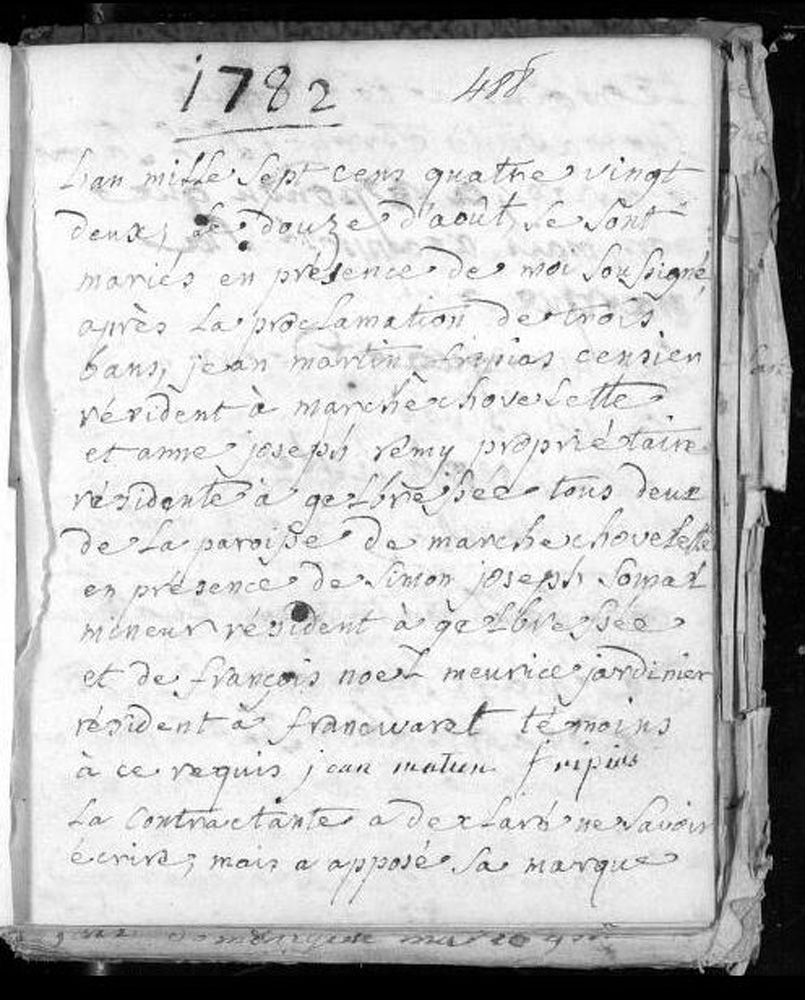 1782 488
L'an mille sept cens quatre vingt
deux, le douze d'août, se sont
mariés en présence de moi soussigné,
après la proclamation de trois
bans, jean martin fripias censier
résident à marche chovelette
et anne joseph remy propriétaire
résidente à gelbressée tous deux
de la paroisse de marche chovelette
en présence de simon joseph somal
mineur résident à gelbressée
et de françois noel meurice jardinier
résident à francwaret témoins
à ce requis jean matin fripias
La contractante a declaré ne savoir
écrire, mais a apposé sa marque